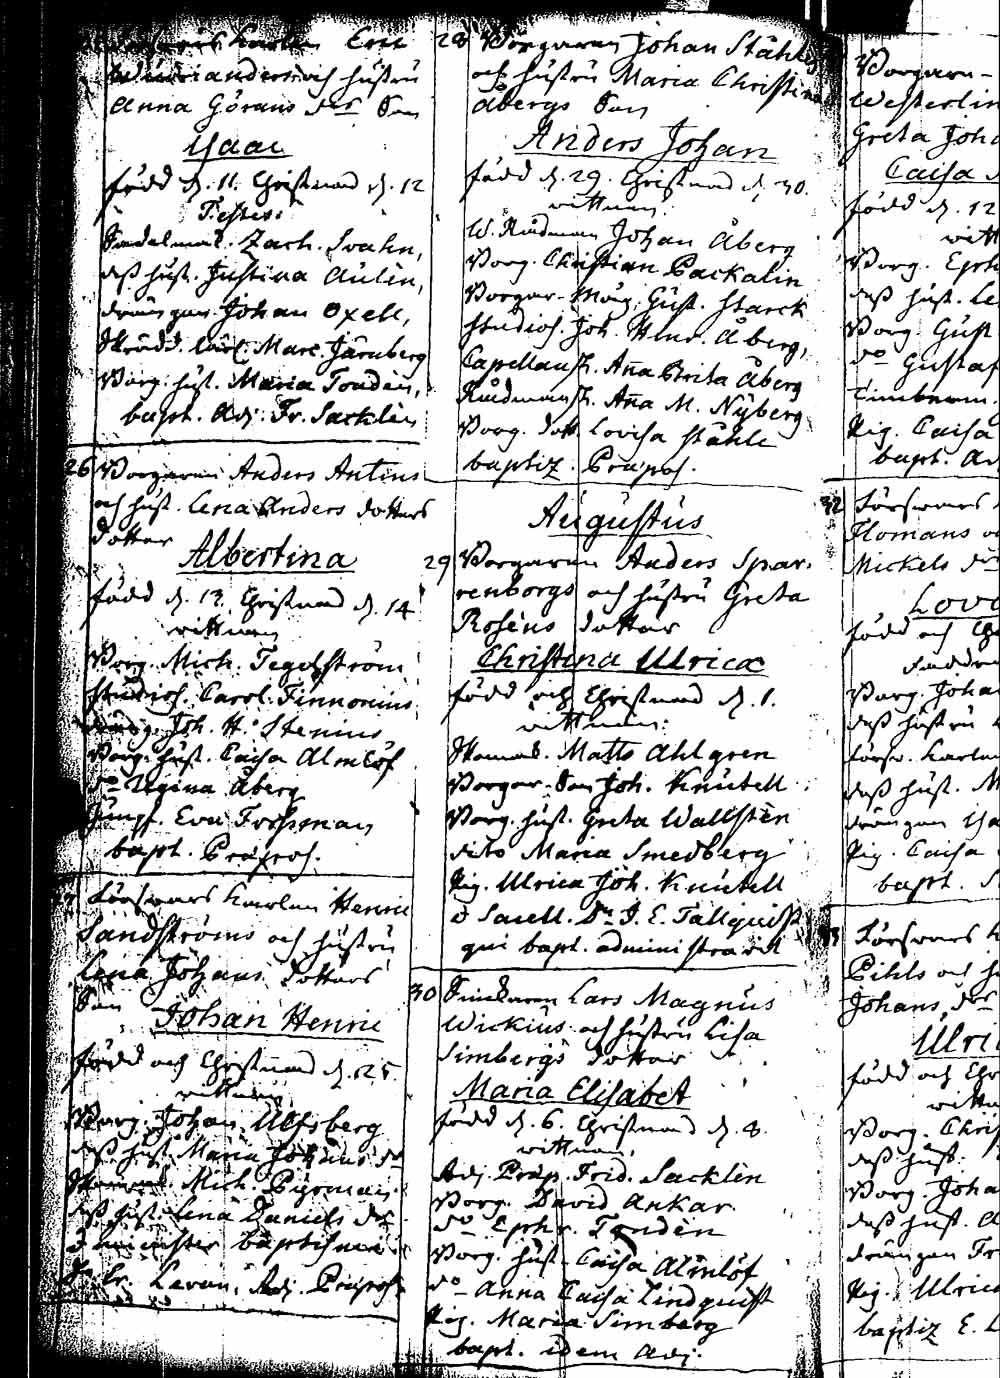 Karlen Eric
Anders och hustru
Anna Görans dr Son
Isaac
född d. 11. Christnad d. 12
Testes:
Sadelmak. Zach. Svahn,
dess hust. Justina Aulin,
drängen Johan Oxell,
Skrädd. Marc. Järnberg
Borg. hust. Maria Tondén,
bapt. Adj. Fr. Sacklén
26 Borgaren Anders Antins
och hust. Lena Anders dotters
dotter
Albertina
född d. 13. Christnad d. 14
vittnen
Borg. Mich. Tegelström
Studios. Carol. Finnonius
Joh. H. Stenius
Borg. hust. Caisa Almlöf
do Regina Åberg
Jungf. Eva Forsman
bapt. Præpos.
Försvars karlen Henric
Sandströms och hustru
Lena Johans dotters
Son
Johan Henric
född och Christnad d. 25.
vittnen
Borg. Johan Ulfsberg
dess hust. Maria Johans dr
Mich. Pyrman
dess hust. Lena Daniels dr
Adj. Præpos.
28 Borgaren Johan Ståhles
och hustru Maria Christina
Åbergs Son
Anders Johan
född d. 29. Christnad d. 30.
vittnen:
W. Rådman Johan Åberg
Borg. Christian Packalin
Borgar. Måg. Gust. Starck
Studios. Joh. Henr. Åberg,
Capellansk. Anna Brita Åberg
Rådmansk. Anna M. Nyberg
Borg. dott. Lovisa Ståhle
baptiz. Præpos.
Augustus
29 Borgaren Anders Spar-
renborgs och hustru Greta
Roséns dotter
Christina Ulrica
född och Christnad d. 1.
vittnen:
Skomak. Matts Ahlgren
Borgar. Son Joh. Knutell
Borg. hust. Greta Wallstén
dito Maria Smedberg
Pig. Ulrica Joh. Knutell
Sacell. Dn. J. E. Tallquist
qui bapt. administravit
30 Lars Magnus
Wickius och hustru Lisa
Simbergs dotter
Maria Elisabet
född d. 6. Christnad d. 8.
vittnen,
Adj. Præp. Frid. Sacklén
Borg. David Ankar
do Ephr. Tondén
Borg. hust. Caisa Almlöf
do Anna Caisa Lindquist
Pig. Maria Simberg
bapt. idem Adj.
Borgare-
Westerlin
Greta Joh
Caisa
född d. 12
vitt
Borg. Eph
dess hust. Le
Borg. Gust
do Gustaf
Timberm.
Pig. Caisa
bapt. Ad
32 Försvars
Flomans o
Mickels d
Lovi
född och Ch
Faddra
Borg. Joha
dess hustru
försv. karlen
dess hust. M
drängen Isa
Pig. Caisa
bapt. S
33 Försvars k
Pihls och h
Johans dr
Ulric
född och Chr
vittn
Borg. Chris
dess hust.
Borg. Joha
dess hust. A
drängen Fr
Pig. Ulric
baptiz E. L